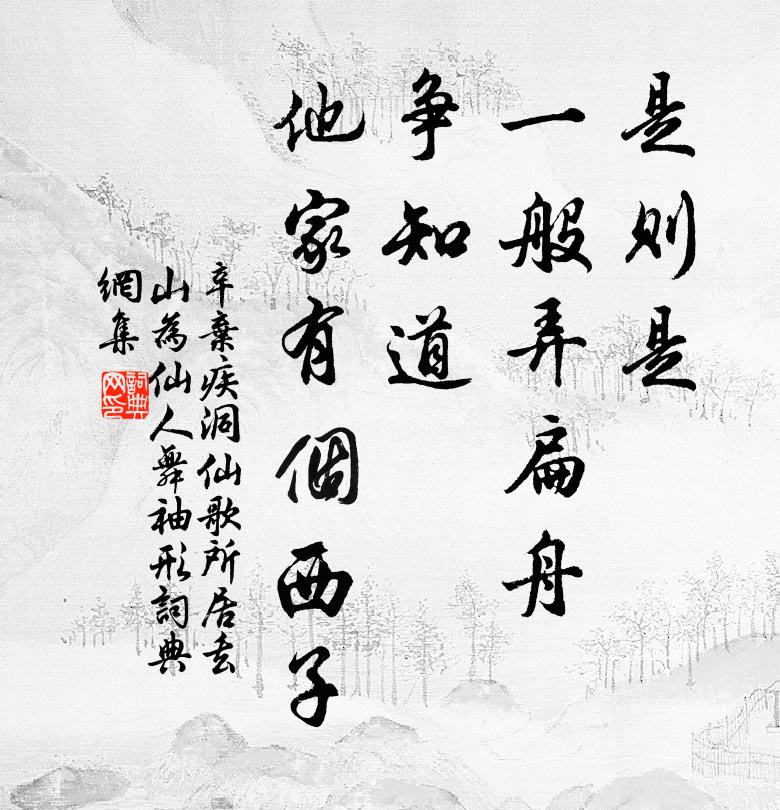 是则是
一般弄扁舟
争知道
他家有個西子
辛棄疾洞仙歌所居去
山為仙人舞袖形詞典
網集
詞典
网印